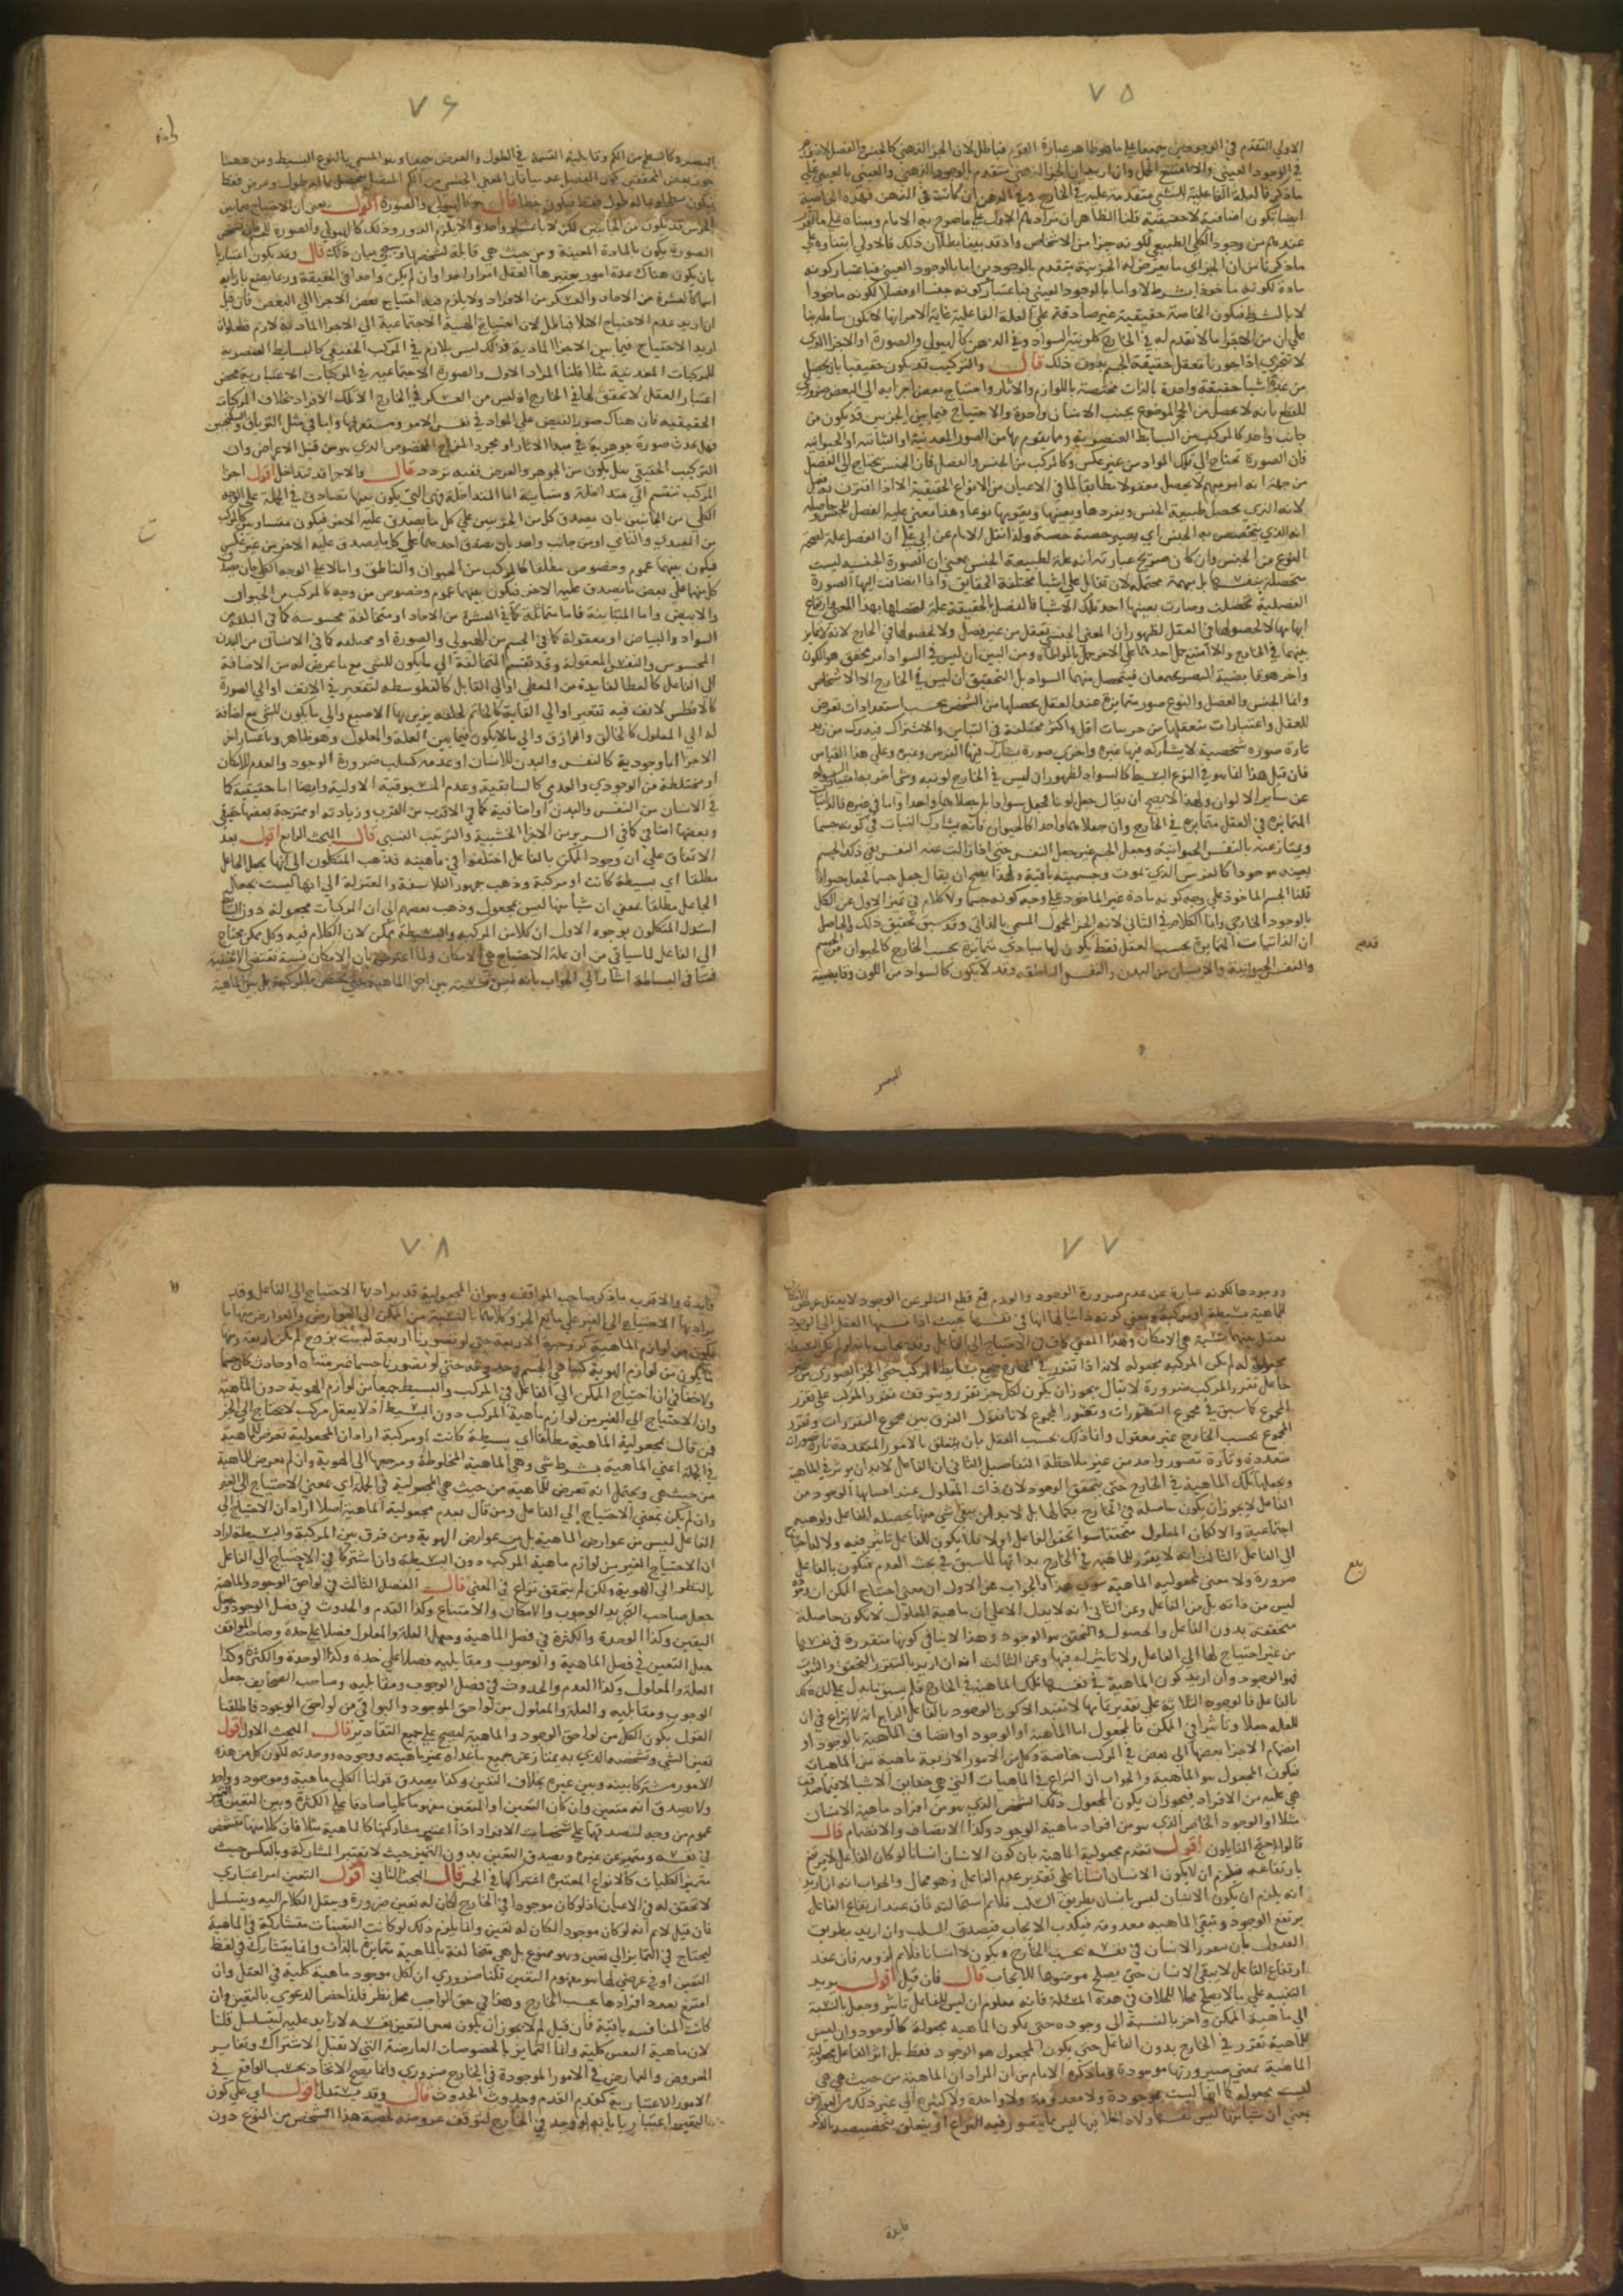 ٧٥
الاولي التقدم في الوجودين جميعا علي ما هو ظاهر عبارة القوم فباطل لان الجزء الذهني كالجنس والفصل لا يتقدم
في الوجود العيني والا امتنع الحمل وان اريد ان الجزء الذهني متقدم بالوجود الذهني والعيني بالعيني علي
ما ذكر فالعلة الفاعلية للشي متقدمة عليه في الخارج وفي الذهن ان كانت في الذهن فهذه الخاصية
ايضا يكون اضافية لا حقيقية قلنا الظاهر ان مرادهم الاول علي ما صرح به الامام ومبناه علي ما تقرر
عندهم من وجود الكلي الطبيعي لكونه جزا من الاشخاص واذ قد بينا بطلان ذلك فالاولي ابتناوه علي
ما ذكرنا من ان الجزء اي ما يعرض له الجزئية يتقدم بالوجودين اما بالوجود العيني فباعتبار كونه
مادة لكونه ماخوذا بشرط لا واما بالوجود العيني فباعتبار كونه جنسا او فصلا لكونه ماخوذا
لا بالشرط فيكون الخاصة حقيقية غير صادقة علي العلة الفاعلية غاية الامر انها لا تكون شاملة بنا
علي ان من الاجزا ما لا تقدم له في الخارج كلونية السواد وفي الذهن كالهيولي والصورة او الاجزا التي
لا تتجزي اذا جوزنا تعقل حقيقة الجسم بدون ذلك قال والتركيب قد يكون حقيقيا بان يحصل
من عدة اشيا حقيقة واحدة بالذات مختصة باللوازم والاثار واحتياج بعض اجزايه الي البعض ضروري
للقطع بانه لا يحصل من الحجر الموضوع بجنب الانسان واحدة والاحتياج فيما بين الجزئين قد يكون من
جانب واحد كالمركب من البسايط العنصرية وما يقوم بها من الصور المعدنية او النباتية او الحيوانية
فان الصورة تحتاج الي تلك المواد من غير عكس وكالمركب من الجنس والفصل فان الجنس يحتاج الي الفصل
من جهة انه امر مبهم لا يحصل معقولا مطابقا لما في الاعيان من الانواع الحقيقية الا اذا اقترن به فصل
لانه الذي يحصل طبيعة الجنس ويفرزها ويعينها ويقومها نوعا وهذا معني علية الفصل للجنس وحاصله
انه الذي يتخصص به الجنس اي يصير حصة حصة ولذا نقل الامام عن ابي علي ان الفصل علة لحصة
النوع من الجنس وان كان صريح عبارته انه علة لطبيعة الجنس بمعني ان الصورة الجنسية ليست
متحصلة بنفسها بل مبهمة محتملة لان تقال علي اشيا مختلفة الحقايق واذا انضافت اليها الصورة
الفصلية تحصلت وصارت بعينها احد تلك الاشيا فالفصل بالحقيقة علة لتحصلها بهذا المعني وارتفاع
ابهامها لا لحصولها في العقل لظهور ان المعني الجنسي يعقل من غير فصل ولا لحصولها في الخارج لانه لا تمايز
بينهما في الخارج والا امتنع حمل احدهما علي الاخر حمل بالمواطاة ومن البين ان ليس في السواد امر محقق هو اللون
واخر هو قابضية البصر يجتمعان فيتحصل منهما السواد بل التحقيق ان ليس في الخارج الا الاشخاص
وانما الجنس والفصل والنوع صور متمايزة عند العقل يحصلها من الشخص بحسب استعدادات تعرض
للعقل واعتبارات يتعقلها من جزيات اقل واكثر مختلفة في التباين والاشتراك فيدرك من زيد
تارة صورة شخصية لا يشاركه فيها غيره واخري صورة يشاركه فيها الفرس وغيره وعلي هذا القياس
فان قيل هذا انما هو في النوع البسيط كالسواد لظهور ان ليس في الخارج لونيه وشي اخر به امتياز السواد
عن ساير الالوان ولهذا لا يصح ان يقال جعل لونا فجعل سوادا بل جعلاهما واحدا واما في غيره فالذاتيات
المتمايزة في العقل متمايزة في الخارج وان جعلاهما واحدا كالحيوان فانه يشارك النبات في كونه جسما
ويمتاز عنه بالنفس الحيوانية وجعل الجسم غير جعل النفس حتي اذا زالت عنه النفس بقي ذلك الجسم
بعينه موجودا كالفرس الذي يموت وجسميته باقية ولهذا يصح ان يقال جعل جسما فجعل حيوانا
قلنا الجسم الماخوذ علي وجه كونه مادة غير الماخوذ علي وجه كونه جنسا ولا كلام في تميز الاول عن الكل
بالوجود الخارجي وانما الكلام في الثاني لانه الجزء المحمول المسمي بالذاتي وقد سبق تحقيق ذلك والحاصل
ان الذاتيات المتمايزة بحسب العقل فقط يكون لها مبادي متمايزة بحسب الخارج كالحيوان من الجسم
والنفس الحيوانية والانسان من البدن والنفس الناطقة وقد لا يكون كالسواد من اللون وقابضية
البصر
٧٦
البصر وكالسطح من الكم وقابلية القسمة في الطول والعرض جميعا وهو المسمي بالنوع البسيط ومن ههنا
يكون سطحا وماله طول فقط فيكون خطا قال كالهيولي والصورة اقول يعني ان الاحتياج فيما بين
الجزئين قد يكون من الجانبين لكن لا باعتبار واحد والا يلزم الدور وذلك كالهيولي والصورة للجسم فتشخص
الصورة يكون بالمادة المعينة ومن حيث هي قابلة لتشخصها وسيجي بيان ذلك قال وقد يكون اعتباريا
بان يكون هناك عدة امور يعتبرها العقل امرا واحدا وان لم يكن واحدا في الحقيقة وربما يضع بازايه
اسما كالعشرة من الاحاد والعسكر من الافراد ولا يلزم فيه احتياج بعض الاجزا الي البعض فان قيل
ان اريد عدم الاحتياج اصلا فباطل لان احتياج الهيئة الاجتماعية الي الاجزا المادية لازم قطعا وان
اريد الاحتياج فيما بين الاجزا المادية فذلك ليس بلازم في المركب الحقيقي كالبسايط العنصرية
للمركبات المعدنية مثلا قلنا المراد الاول والصورة الاجتماعية في المركبات الاعتبارية محض
اعتبار العقل لا تحقق لها في الخارج اذ ليس من العسكر في الخارج الا تلك الافراد بخلاف المركبات
الحقيقية فان هناك صورا تفيض علي المواد في نفس الامر واما في مثل الترياق والسكنجبين
فهل يحدث صورة جوهرية هي مبدا الاثار او مجرد المزاج المخصوص الذي هو من قبيل الاعراض وان
التركيب الحقيقي هل يكون من الجوهر والعرض ففيه تردد قال والاجزا قد تتداخل اقول اجزا
المركب تنقسم الي متداخلة ومتباينة اما المتداخلة وهي التي يكون بينها تصادق في الجملة
الكلي من الجانبين بان يصدق كل من الجزئين علي كل ما يصدق عليه الاخر فيكون متساويين كالمركب
من المغتذي والنامي او من جانب واحد بان يصدق احدهما علي كل ما يصدق عليه الاخر من غير عكس
فيكون بينهما عموم وخصوص مطلقا كالمركب من الحيوان والناطق واما لا علي الوجه الكلي بان يصدق
كل منهما علي بعض ما يصدق عليه الاخر فيكون بينهما عموم وخصوص من وجه كالمركب من الحيوان
والابيض واما المتباينة فاما متماثلة كما في العشرة من الاحاد او متخالفة محسوسة كما في البلقة من
السواد والبياض او معقولة كما في الجسم من الهيولي والصورة او مختلفة كما في الانسان من البدن
المحسوس والنفس المعقولة وقد تقسم المتخالفة الي ما يكون للشي مع ما عرض له من الاضافة
الي الفاعل كالعطا لفايدة من المعطي او الي القابل كالفطوسة لتقعير في الانف او الي الصورة
كالافطس لانف فيه تقعير او الي الغاية كالخاتم لحلقة يزين بها الاصبع والي ما يكون للشي مع اضافة
له الي المعلول كالخالق والرازق والي ما لا يكون فيما بين العلة والمعلول وهو ظاهر وباعتبار اخر
الاجزا اما وجودية كالنفس والبدن للانسان او عدمية كسلب ضرورة الوجود والعدم للامكان
او مختلطة من الوجودي والعدمي كالسابقية وعدم المسبوقية للاولية وايضا اما حقيقية كما
في الانسان من النفس والبدن او اضافية كما في الاقرب من القرب وزيادته او ممتزجة بعضها حقيقي
وبعضها اضافي كما في السرير من الاجزا الخشبية والترتيب النسبي قال البحث الرابع اقول بعد
الاتفاق علي ان وجود الممكن بالفاعل اختلفوا في ماهيته فذهب المتكلمون الي انها بجعل الجاعل
مطلقا اي بسيطة كانت او مركبة وذهب جمهور الفلاسفة والمعتزلة الي انها ليست بجعل
الجاعل مطلقا بمعني ان شيا منها ليس بمجعول وذهب بعضهم الي ان المركبات مجعولة دون البسايط
استدل المتكلمون بوجوه الاول ان كلا من المركبة والبسيطة ممكن لان الكلام فيه وكل ممكن محتاج
الي الفاعل لما سياتي من ان علة الاحتياج هي الامكان ولما اعترض بان الامكان نسبة تقتضي الاثنينية
فتنافي البساطة اشار الي الجواب بانه ليس نسبة بين اجزا الماهية حتي يختص بالمركبة بل بين الماهية
٧٧
ووجودها لكونه عبارة عن عدم ضرورة الوجود والعدم فمع قطع النظر عن الوجود لا يعقل عروض الامكان
للماهية بسيطة او مركبة ومعني كونه ذاتيا لها انها في نفسها بحيث اذا نسبها العقل الي الوجود
يعقل بينهما نسبة هي الامكان وهذا المعني كاف في الاحتياج الي الفاعل
مجعولة لم يكن المركبة مجعولة لانه اذا تقرر في الخارج جميع بسايط المركب حتي الجزء الصوري من غير
جاعل تقرر المركب ضرورة لا يقال يجوز ان يكون لكل جزء تقرر ويتوقف تقرر المركب علي تقرر
المجموع كما سبق في مجموع التصورات وتصور المجموع لانا نقول الفرق بين مجموع التقررات وتقرر
المجموع بحسب الخارج غير معقول وانما ذلك بحسب العقل بان يتعلق بالامور المتعددة تارة تصورات
متعددة وتارة تصور واحد من غير ملاحظة التفاصيل الثاني ان الفاعل لا بد ان يوثر في الماهية
ويجعلها تلك الماهية في الخارج حتي يتحقق الوجود لان ذات المعلول عند افاضتها الوجود من
الفاعل لا يجوز ان يكون حاصلة في الخارج بكمالها بل لا بد ان يبقي شي منها يحصله الفاعل ولو هيئة
اجتماعية والا لكان المعلول متحققا سوا تحقق الفاعل او لا فلا يكون للفاعل تاثير فيه ولا له احتياج
الي الفاعل الثالث انه لا تقرر للماهية في الخارج بذاتها لما سبق في بحث العدم فيكون بالفاعل
ضرورة ولا معني لمجعولية الماهية سوي هذا والجواب عن الاول ان معني احتياج الممكن ان وجوده
ليس من ذاته بل من الفاعل وعن الثاني انه لا يدل الا علي ان ماهية المعلول لا يكون حاصلة
متحققة بدون الفاعل والحصول والتحقق هو الوجود وهذا لا ينافي كونها متقررة في نفسها
من غير احتياج لها الي الفاعل ولا تاثير له فيها وعن الثالث انه ان اريد بالتقرر التحقق والثبوت
فهو الوجود وان اريد كون الماهية في نفسها تلك الماهية في الخارج فلم يسبق ما يدل علي ان ذلك
بالفاعل فالوجوه الثلاثة علي تقدير تمامها لا تفيد الا كون الوجود بالفاعل الرابع انه لا نزاع في ان
للعلة جعلا وتاثيرا في الممكن فالمجعول اما الماهية او الوجود او اتصاف الماهية بالوجود او
انضمام الاجزا بعضها الي بعض في المركب خاصة وكل من الامور الاربعة ماهية من الماهيات
فيكون المجعول هو الماهية والجواب ان النزاع في الماهيات التي هي حقايق الاشيا لا فيما صدقت
هي عليه من الافراد فيجوز ان يكون المجعول ذلك الشخص الذي هو من افراد ماهية الانسان
مثلا او الوجود الخاص الذي هو من افراد ماهية الوجود وكذا الاتصاف والانضمام قال
قالوا احتج القايلون اقول بعدم مجعولية الماهية بان كون الانسان انسانا لو كان بالفاعل لارتفع
بارتفاعه فيلزم ان لا يكون الانسان انسانا علي تقدير عدم الفاعل وهو محال والجواب انه ان اريد
انه يلزم ان يكون الانسان ليس بانسان بطريق السلب فلا نم استحالته فان عند ارتفاع الفاعل
يرتفع الوجود وتبقي الماهية معدومة فيكذب الايجاب فيصدق السلب وان اريد بطريق
العدول بان يتقرر الانسان في نفسه بحسب الخارج ويكون لا انسانا فلا نم لزومه فان عند
ارتفاع الفاعل لا يبقي الانسان حتي يصلح موضوعا للايجاب قال فان قيل اقول يريد
التنبيه علي ما لا يصلح محلا للخلاف في هذه المسئلة فانه معلوم ان ليس للفاعل تاثير وجعل بالنسبة
الي ماهية الممكن واخر بالنسبة الي وجوده حتي يكون الماهية مجعولة كالوجود وان ليس
للماهية تقرر في الخارج بدون الفاعل حتي يكون المجعول هو الوجود فقط بل اثر الفاعل مجعولية
الماهية بمعني صيرورتها موجودة وما ذكره الامام من ان المراد ان الماهية من حيث هي هي
ليست بمجعولة كما انها ليست بموجودة ولا معدومة ولا واحدة ولا كثيرة الي غير ذلك من العوارض
بمعني ان شيا منها ليس نفسها ولا داخلا فيها ليس مما يتصور فيه النزاع او يتعلق بتخصيصه بالذكر
فايدة
٧٨
فايدة والاقرب ما ذكره صاحب المواقف وهو ان المجعولية قد يراد بها الاحتياج الي الفاعل وقد
يراد بها الاحتياج الي الغير علي ما يعم الجزء وكلاهما بالنسبة من الممكن الي العوارض والعوارض منها ما
يكون من لوازم الماهية كزوجية الاربعة حتي لو تصورنا اربعة ليست بزوج لم يكن اربعة ومنها
ما يكون من لوازم الهوية كتناهي الجسم وحدوثه حتي لو تصورنا جسما غير متناه او حادث كان جسما
ولا خفا في ان احتياج الممكن الي الفاعل في المركب والبسيط جميعا من لوازم الهوية دون الماهية
وان الاحتياج الي الغير من لوازم ماهية المركب دون البسيط اذ لا يعقل مركب لا يحتاج الي الجزء
فمن قال بمجعولية الماهية مطلقا اي بسيطة كانت او مركبة اراد ان المجعولية تعرض للماهية
في الجملة اعني الماهية بشرط شي وهي الماهية المخلوطة ومرجعها الي الهوية وان لم تعرض للماهية
من حيث هي ويحتمل انه تعرض للماهية من حيث هي المجعولية في الجملة اي بمعني الاحتياج الي الغير
وان لم يكن بمعني الاحتياج الي الفاعل ومن قال بعدم مجعولية الماهية اصلا اراد ان الاحتياج الي
الفاعل ليس من عوارض الماهية بل من عوارض الهوية ومن فرق بين المركبة والبسيطة اراد
ان الاحتياج الي الغير من لوازم ماهية المركب دون البسيطة وان اشتركا في الاحتياج الي الفاعل
بالنظر الي الهوية ولكن لم يتحقق نزاع في المعني قال الفصل الثالث في لواحق الوجود والماهية
جعل صاحب التجريد الوجوب والامكان والامتناع وكذا القدم والحدوث في فصل الوجود وجعل
التعين وكذا الوحدة والكثرة في فصل الماهية وجعل العلة والمعلول فصلا علي حدة وصاحب المواقف
جعل التعين في فصل الماهية والوجوب ومقابليه فصلا علي حدة وكذا الوحدة والكثرة وكذا
العلة والمعلول وكذا القدم والحدوث في فصل الوجوب ومقابليه وصاحب الصحايف جعل
الوجوب ومقابليه والعلة والمعلول من لواحق الموجود والبواقي من لواحق الوجود فاطلقنا
القول بكون الكل من لواحق الوجود والماهية ليصح علي جميع التقادير قال المبحث الاول اقول
تعين الشي وتشخصه الذي به يمتاز عن جميع ما عداه غير ماهيته ووجوده ووحدته لكون كل من هذه
الامور مشتركا بينه وبين غيره بخلاف التعين وكذا يصدق قولنا الكلي ماهية وموجود وواحد
ولا يصدق انه متعين وان كان التعين او المتعين مفهوما كليا صادقا علي الكثرة وبين التعين والتميز
عموم من وجه لتصادقهما علي تشخصات الافراد اذا اعتبر مشاركتها كالماهية مثلا فان كلا منها متشخص
في نفسه ومتميز عن غيره ويصدق التعين بدون التميز حيث لا تعتبر المشاركة وبالعكس حيث
تتميز الكليات كالانواع المعتبرة اشتراكها في الجنس قال البحث الثاني اقول التعين امر اعتباري
لا تحقق له في الاعيان اذ لو كان موجودا في الخارج لكان له تعين ضرورة وينقل الكلام اليه ويتسلسل
فان قيل لا نم انه لو كان موجودا لكان له تعين وانما يلزم ذلك لو كانت التعينات متشاركة في الماهية
ليحتاج في التمايز الي تعين وهو ممنوع بل هي متخالفة بالماهية متمايزة بالذات وانما يتشارك في لفظ
التعين او في عرضي لها هو مفهوم التعين قلنا ضروري ان لكل موجود ماهية كلية في العقل وان
امتنع تعدد افرادها بحسب الخارج وهذا في حق الواجب محل نظر فلذا خص الدعوي بالتعين وان
كانت المناقشة باقية فان قيل لم لا يجوز ان يكون تعين التعين نفسه لا زايدا عليه ليتسلسل قلنا
لان ماهية التعين كلية وانما التمايز بالخصوصات العارضة التي لا تقبل الاشتراك وتغاير
المعروض والعارض في الامور الموجودة في الخارج ضروري وانما يصح الاتحاد بحسب الواقع في
الامور الاعتبارية كقدم القدم وحدوث الحدوث قال وقد يستدل اقول اي علي كون
التعين اعتباريا بانه لو وجد في الخارج لتوقف عروضه لحصة هذا الشخص من النوع دون